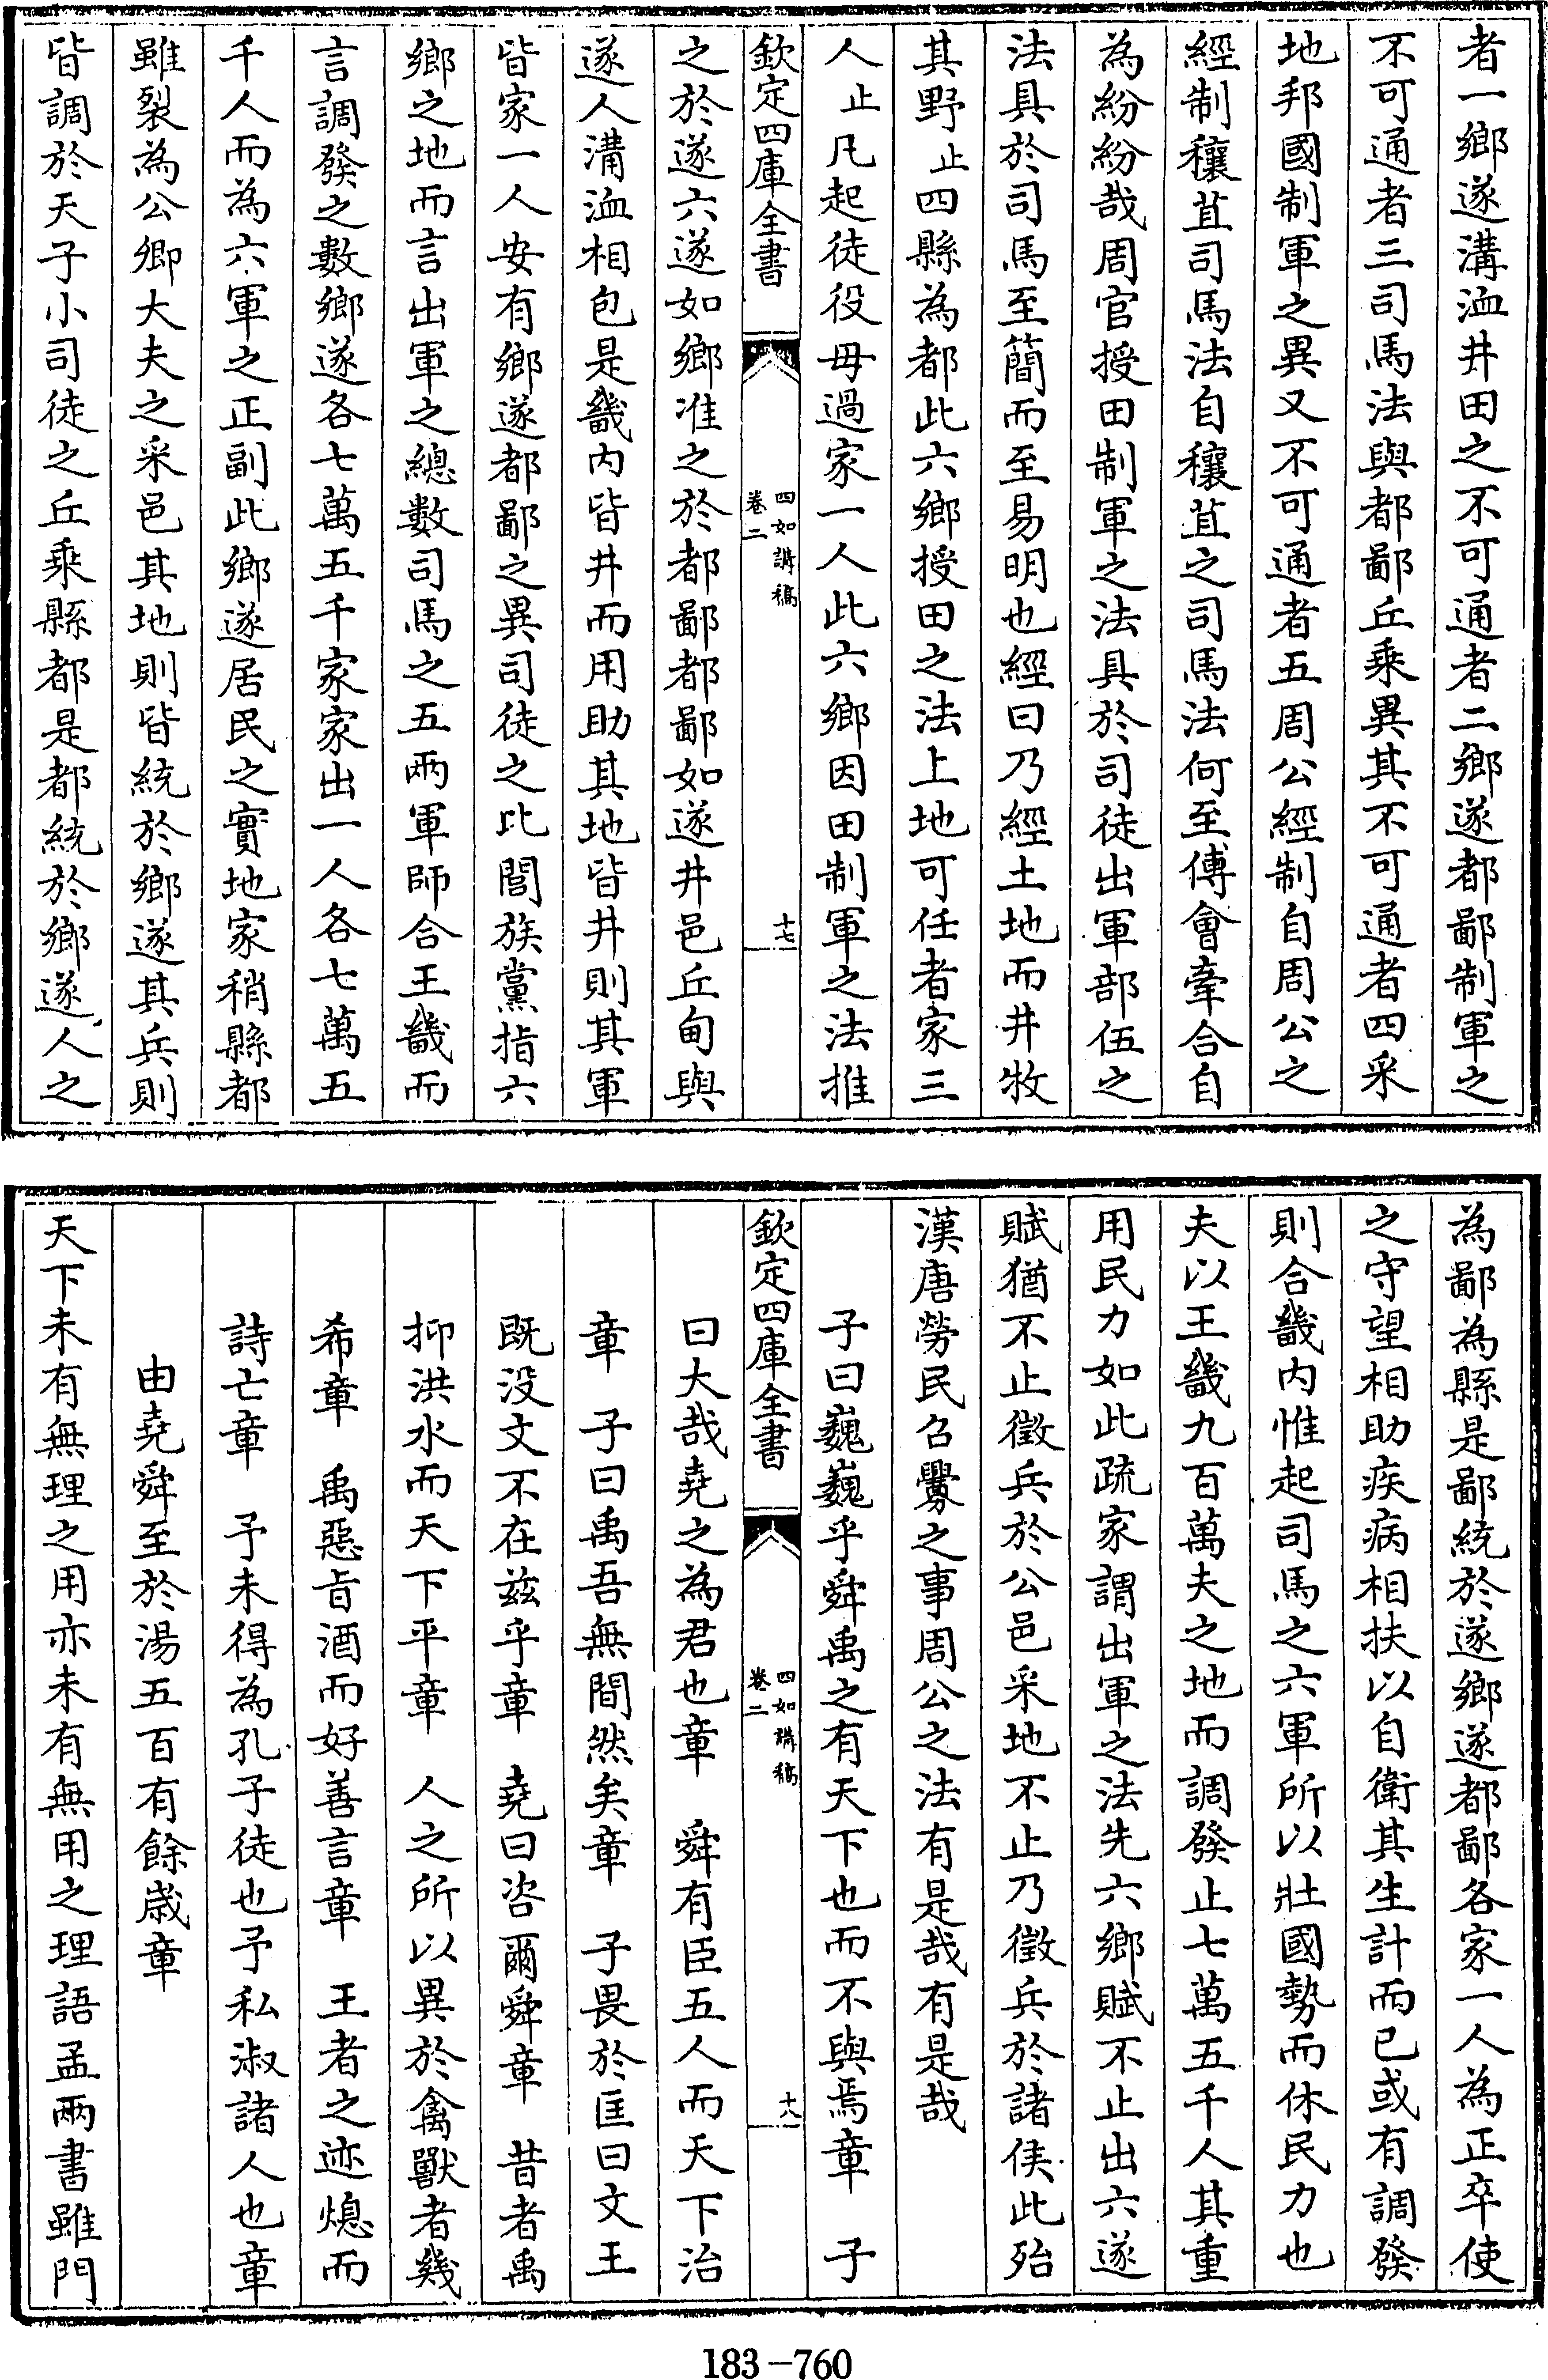 者一鄉遂溝洫井田之不可通者二鄉遂都鄙制軍之
不可通者三司馬法與都鄙丘乘異其不可通者四采
地邦國制軍之異又不可通者五周公經制自周公之
經制穰苴司馬法自穰苴之司馬法何至傅會牽合自
為紛紛哉周官授田制軍之法具於司徒出軍部伍之
法具於司馬至簡而至易明也經曰乃經土地而井牧
其野止四縣為都此六鄉授田之法上地可任者家三
人止凡起徒役毋過家一人此六鄉因田制軍之法推
欽定四庫全書
四如講稿
卷二
十七
之於遂六遂如鄉准之於都鄙都鄙如遂井邑丘甸與
遂人溝洫相包是畿内皆井而用助其地皆井則其軍
皆家一人安有鄉遂都鄙之異司徒之比閭族黨指六
鄉之地而言出軍之總數司馬之五兩軍師合王畿而
言調發之數鄉遂各七萬五千家家出一人各七萬五
千人而為六軍之正副此鄉遂居民之實地家稍縣都
雖裂為公卿大夫之采邑其地則皆統於鄉遂其兵則
皆調於天子小司徒之丘乘縣都是都統於鄉遂人之
為鄙為縣是鄙統於遂鄉遂都鄙各家一人為正卒使
之守望相助疾病相扶以自衛其生計而已或有調發
則合畿内惟起司馬之六軍所以壯國勢而休民力也
夫以王畿九百萬夫之地而調發止七萬五千人其重
用民力如此疏家謂出軍之法先六鄉賦不止出六遂
賦猶不止徵兵於公邑采地不止乃徵兵於諸侯此殆
漢唐勞民召釁之事周公之法有是哉有是哉
子曰巍巍乎舜禹之有天下也而不與焉章　子
欽定四庫全書
四如講稿
卷二
十八
曰大哉堯之為君也章　舜有臣五人而天下治
章　子曰禹吾無間然矣章　子畏於匡曰文王
既没文不在兹乎章　堯曰咨爾舜章　昔者禹
抑洪水而天下平章　人之所以異於禽獸者幾
希章　禹惡旨酒而好善言章　王者之迹熄而
詩亡章　予未得為孔子徒也予私淑諸人也章
由堯舜至於湯五百有餘歲章
天下未有無理之用亦未有無用之理語孟兩書雖門
183-760